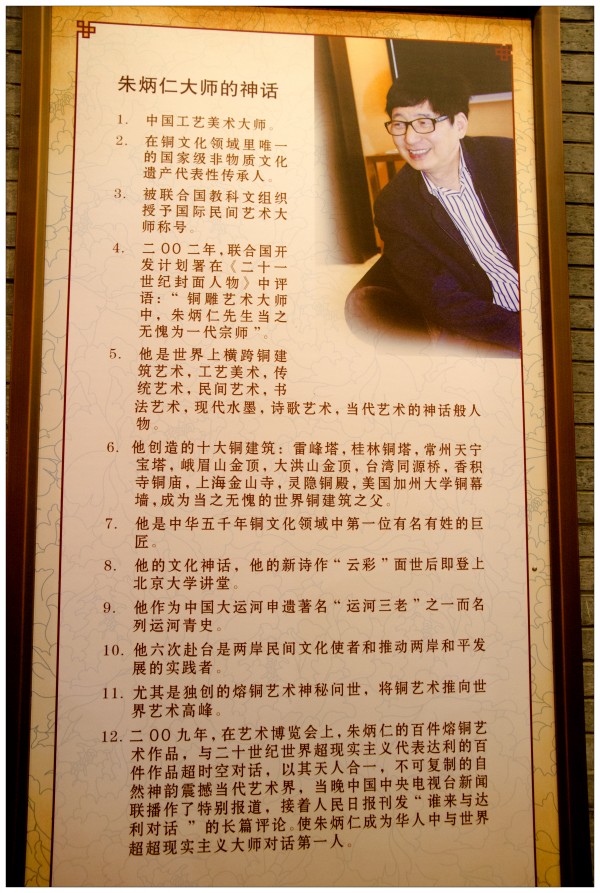 朱炳仁大师的神话
1. 中国工艺美术大师。
2. 在铜文化领域里唯一
的国家级非物质文化
遗产代表性传承人。
3. 被联合国教科文组织
授予国际民间艺术大
师称号。
4. 二OO二年,联合国开
发计划署在《二十一
世纪封面人物》中评
语:“铜雕艺术大师
中,朱炳仁先生当之
无愧为一代宗师”。
5. 他是世界上横跨铜建
筑艺术,工艺美术,传
统艺术,民间艺术,书
法艺术,现代水墨,诗歌艺术,当代艺术的神话般人
物。
6. 他创造的十大铜建筑:雷峰塔,桂林铜塔,常州天宁
宝塔,峨眉山金顶,大洪山金顶,台湾同源桥,香积
寺铜庙,上海金山寺,灵隐铜殿,美国加州大学铜幕
墙,成为当之无愧的世界铜建筑之父。
7. 他是中华五千年铜文化领域中第一位有名有姓的巨
匠。
8. 他的文化神话,他的新诗作“云彩”面世后即登上
北京大学讲堂。
9. 他作为中国大运河申遗著名“运河三老”之一而名
列运河青史。
10. 他六次赴台是两岸民间文化使者和推动两岸和平发
展的实践者。
11. 尤其是独创的熔铜艺术神秘问世,将铜艺术推向世
界艺术高峰。
12. 二OO九年,在艺术博览会上,朱炳仁的百件熔铜艺
术作品,与二十世纪世界超现实主义代表达利的百
件作品超时空对话,以其天人合一,不可复制的自
然神韵震撼当代艺术界,当晚中国中央电视台新闻
联播作了特别报道,接着人民日报刊发“谁来与达
利对话 ”的长篇评论。使朱炳仁成为华人中与世界
超超现实主义大师对话第一人。